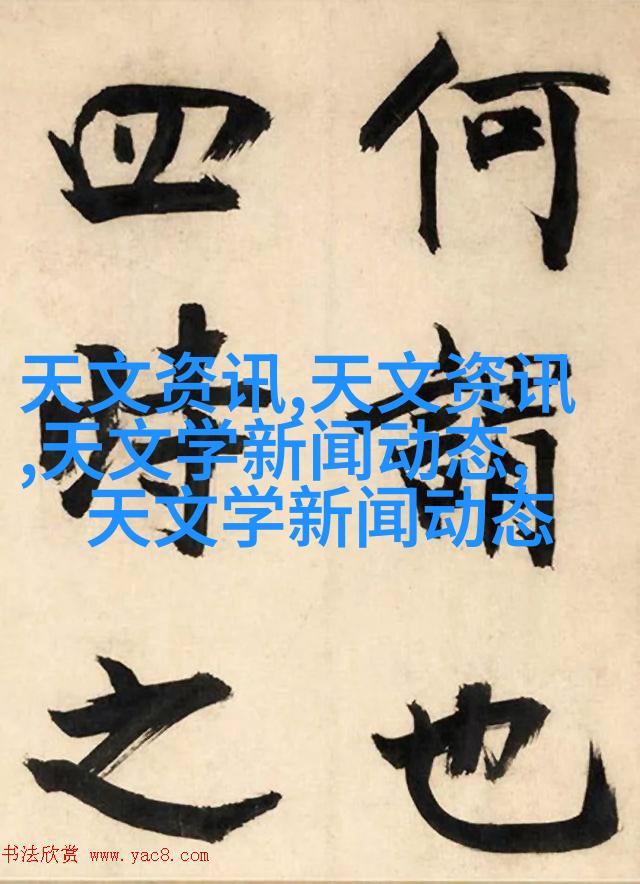 何謂也
四時之
天文资讯,天文资讯
,天文学新闻动态,
天文学新闻动态
书法欣赏 www.yac8.com